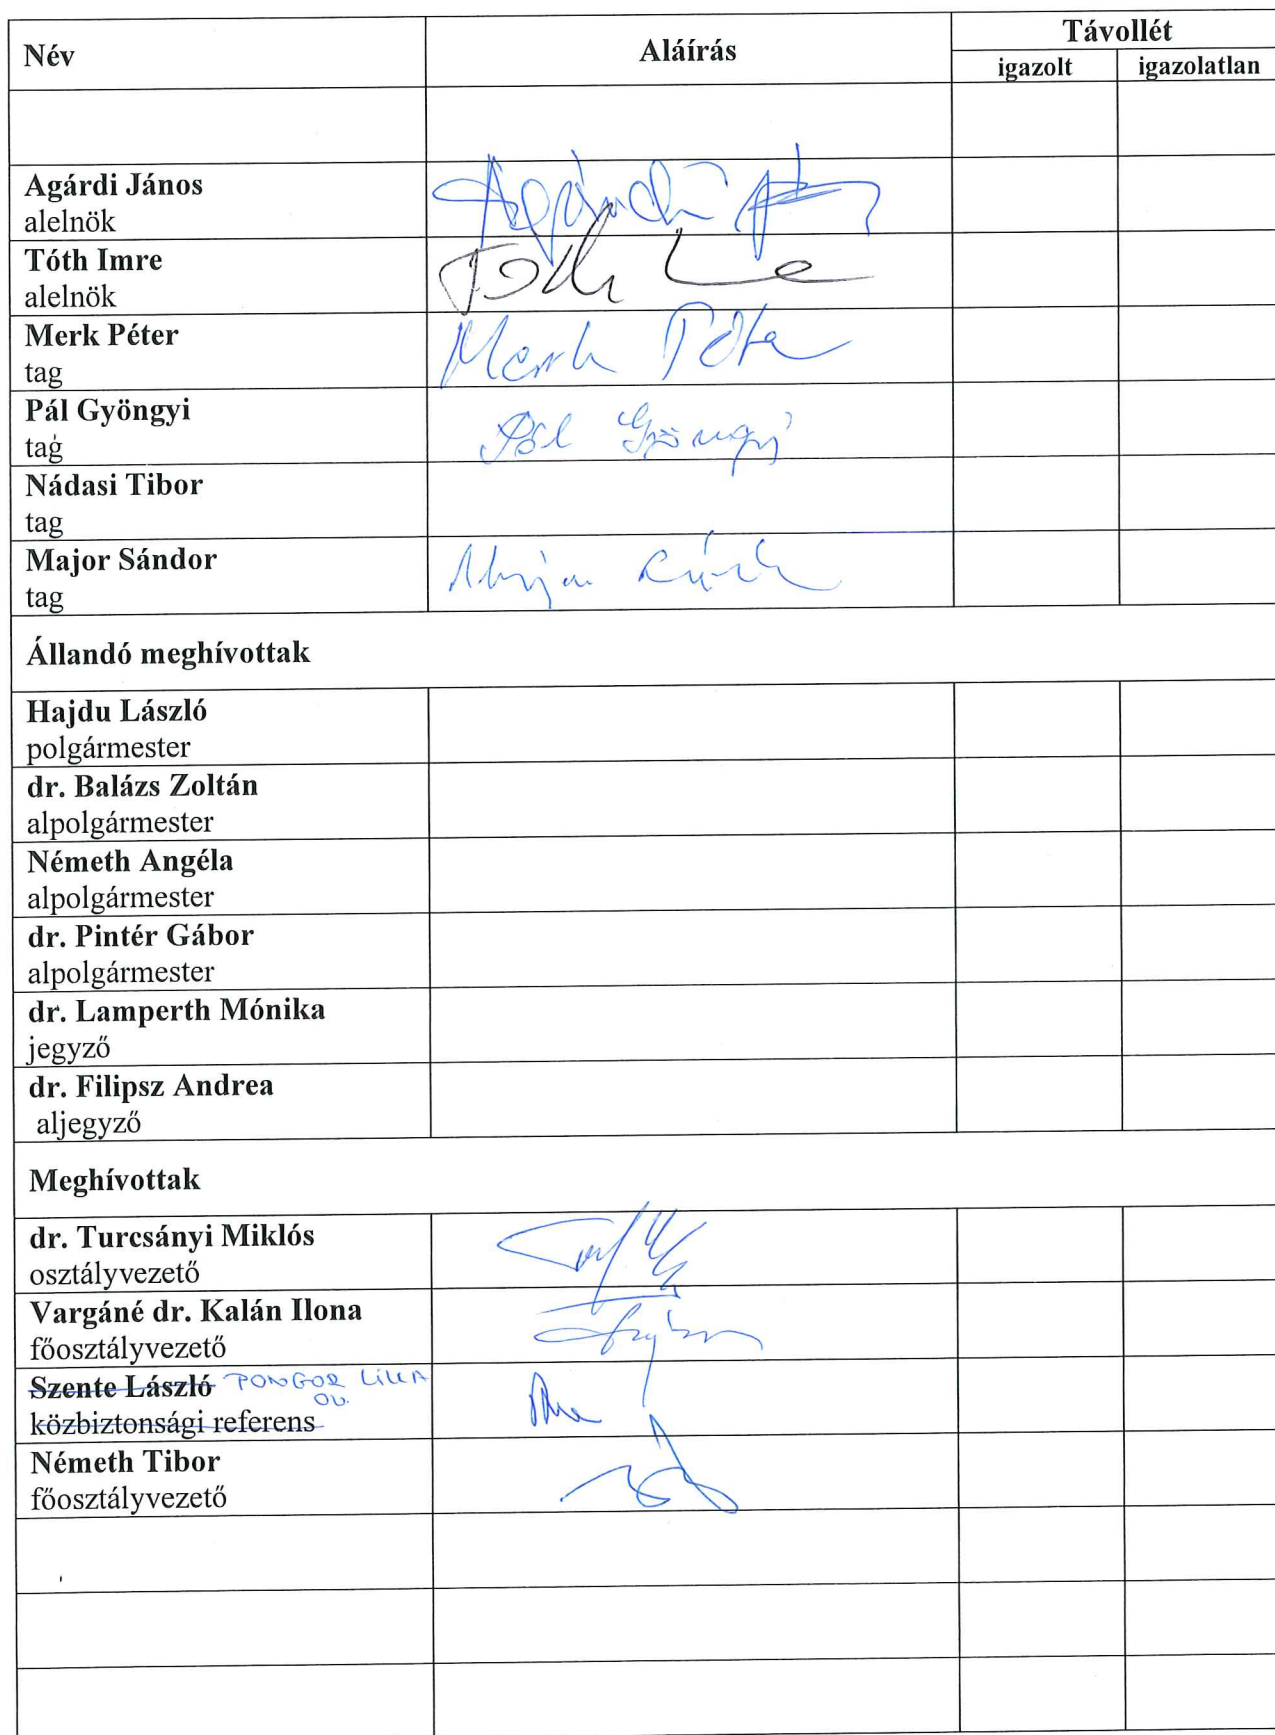 Név Aláírás Távollét
igazolt igazolatlan
Agárdi János Agárdi
alelnök
Tóth Imre Tóth
alelnök
Merk Péter Merk Péter
tag
Pál Gyöngyi Pál Gyöngyi
tag
Nádasi Tibor
tag
Major Sándor
tag
Állandó meghívottak
Hajdu László
polgármester
dr. Balázs Zoltán
alpolgármester
Németh Angéla
alpolgármester
dr. Pintér Gábor
alpolgármester
dr. Lamperth Mónika
jegyző
dr. Filipsz Andrea
aljegyző
Meghívottak
dr. Turcsányi Miklós
osztályvezető
Vargáné dr. Kalán Ilona
főosztályvezető
Szente László PONGOR LILLA
ov.
közbiztonsági referens
Németh Tibor
főosztályvezető